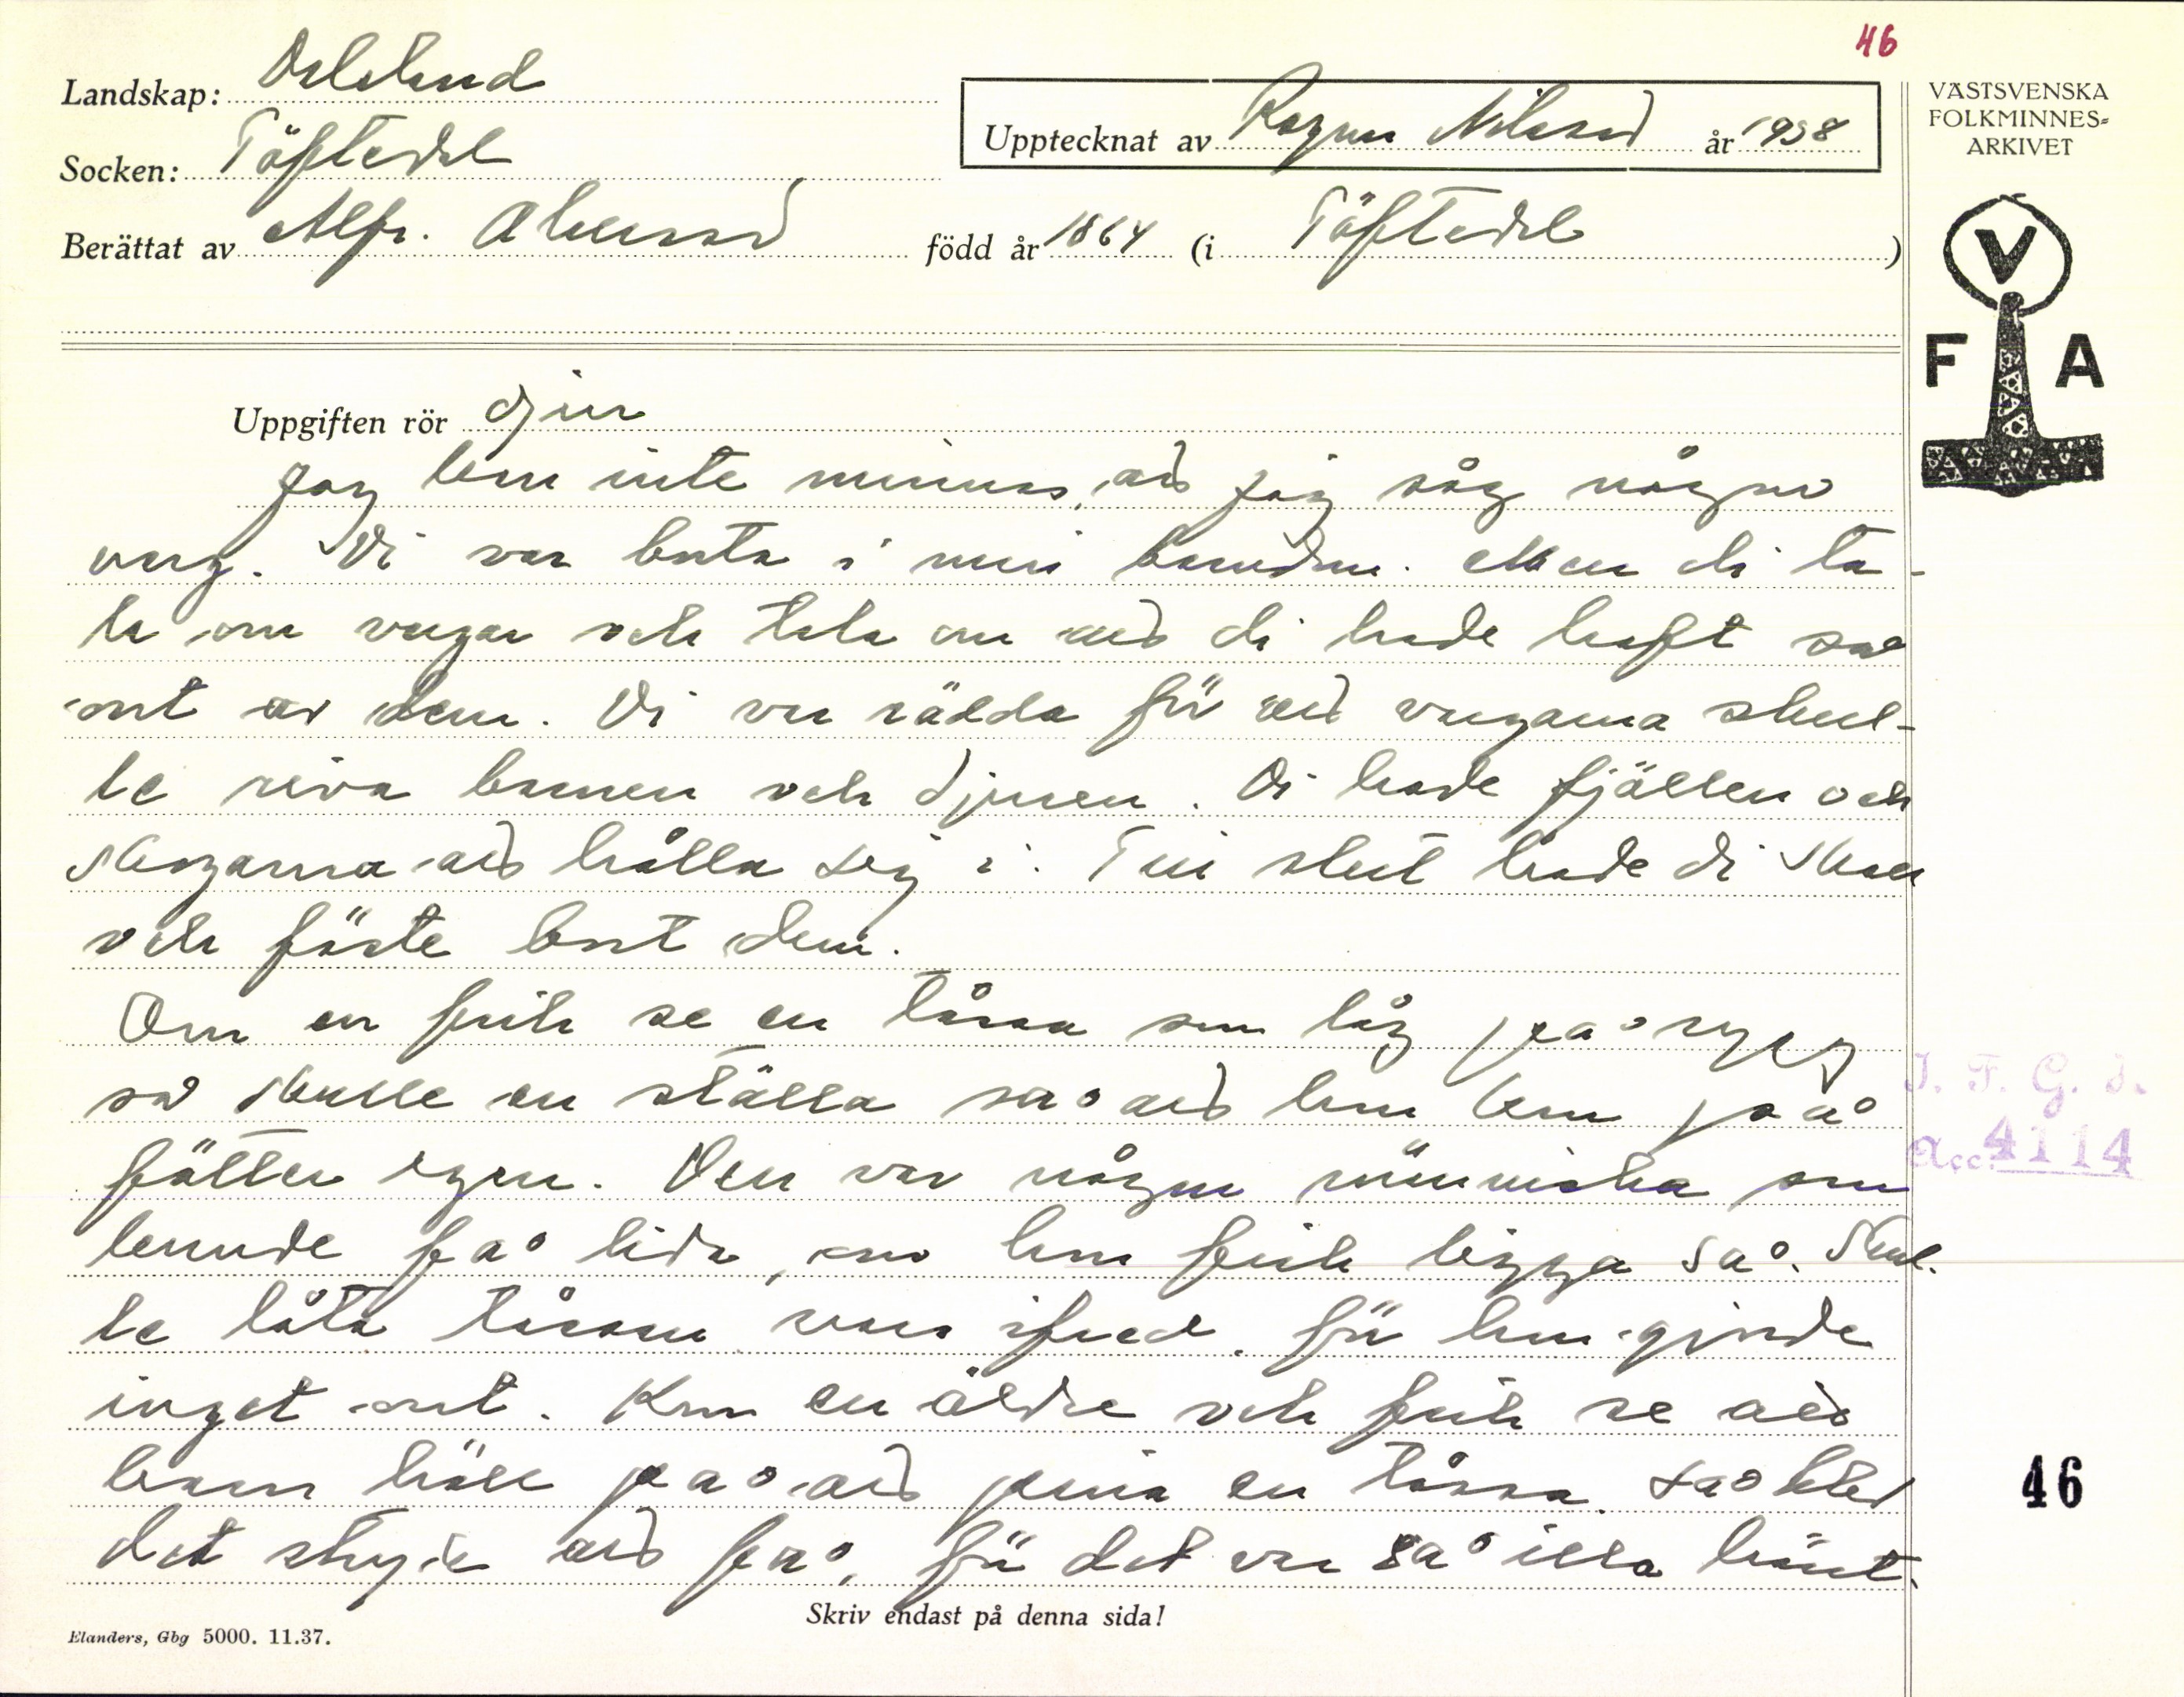 46
Landskap: Dalsland
Upptecknat av Ragnar Nilsson år 1938
VÄSTSVENSKA
FOLKMINNES=
ARKIVET
Socken: Töftedal
Berättat av Alfr. född år 1864 (i Töftedal)
V
F A
Uppgiften rör djur
Jag kan inte minnas, att jag såg någon
varg. Di var borta i min barndom. Men di ta-
la om vargar och tala om att di hade haft så
ont av dem. Di var rädda för att vargarna skul-
le riva barnen och djuren. Di hade fjällen och
skogarna att hålla sej i. Till slut hade di skall
och föste bort dem.
Om en fick se en tåssa som låg på rygg
så skulle en ställa så att han kom på
fötter igen. Den var någon människa som
kunde få lida, om han fick ligga så. Skul-
le låta tåssan vara ifred, för han gjorde
inget ont. Kom en äldre och fick se att
barn höll på att pina en tåssa. Så blev
det stryk att få, för det var så illa känt.
I. F. G. s.
Acc. 4114
46
Skriv endast på denna sida!
Elanders, Gbg 5000. 11.37.